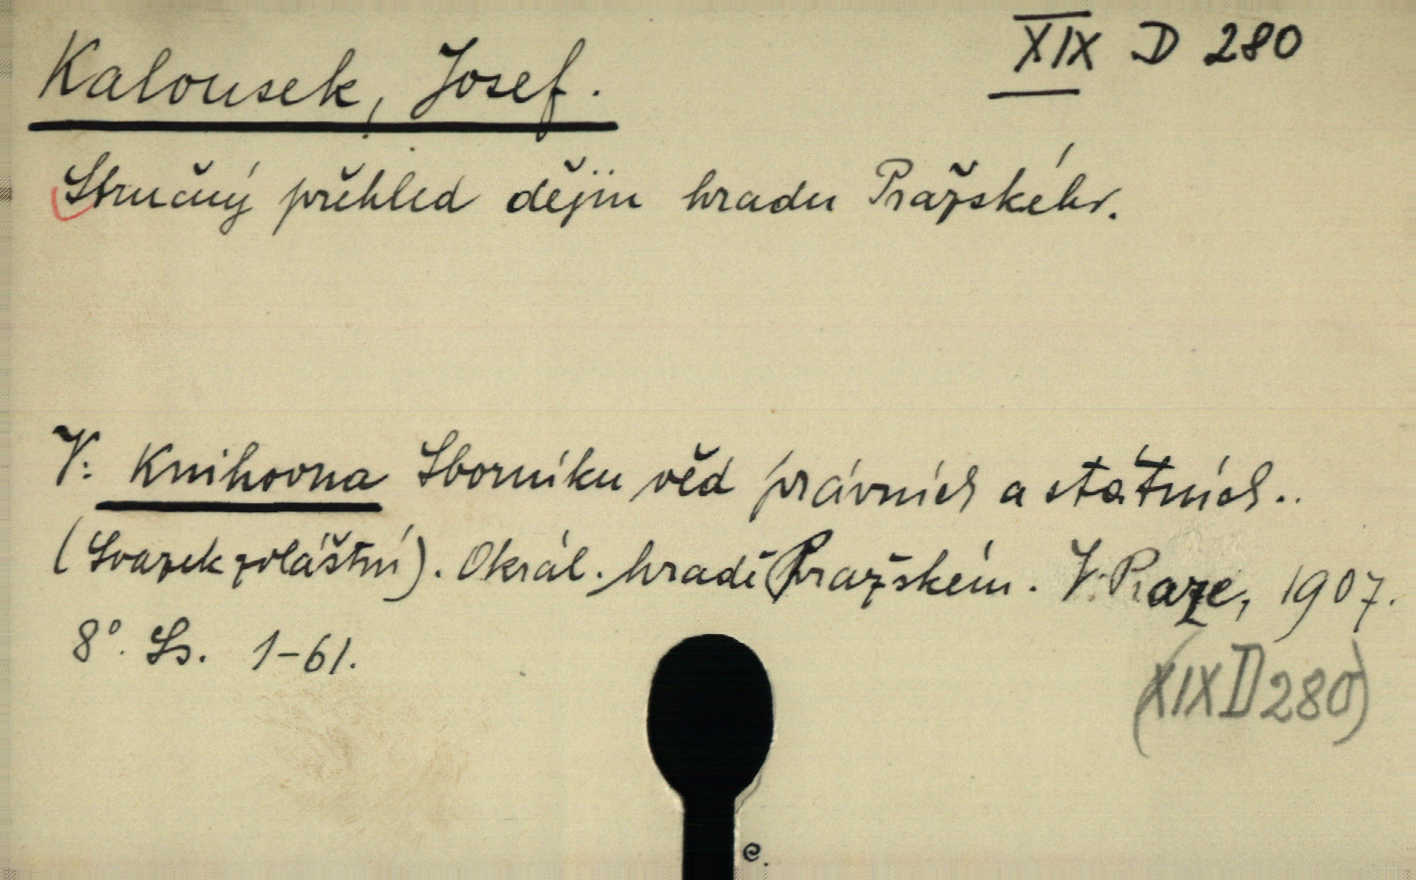 XIX D 280
Kalousek, Josef.
Stručný přehled dějin hradu Pražského.
V: Knihovna Sborníku věd právních a státních..
(Svazek zvláštní). O král. hradě Pražském. V Praze, 1907.
8°. Ss. 1-61.
(XIX D 280)
e.